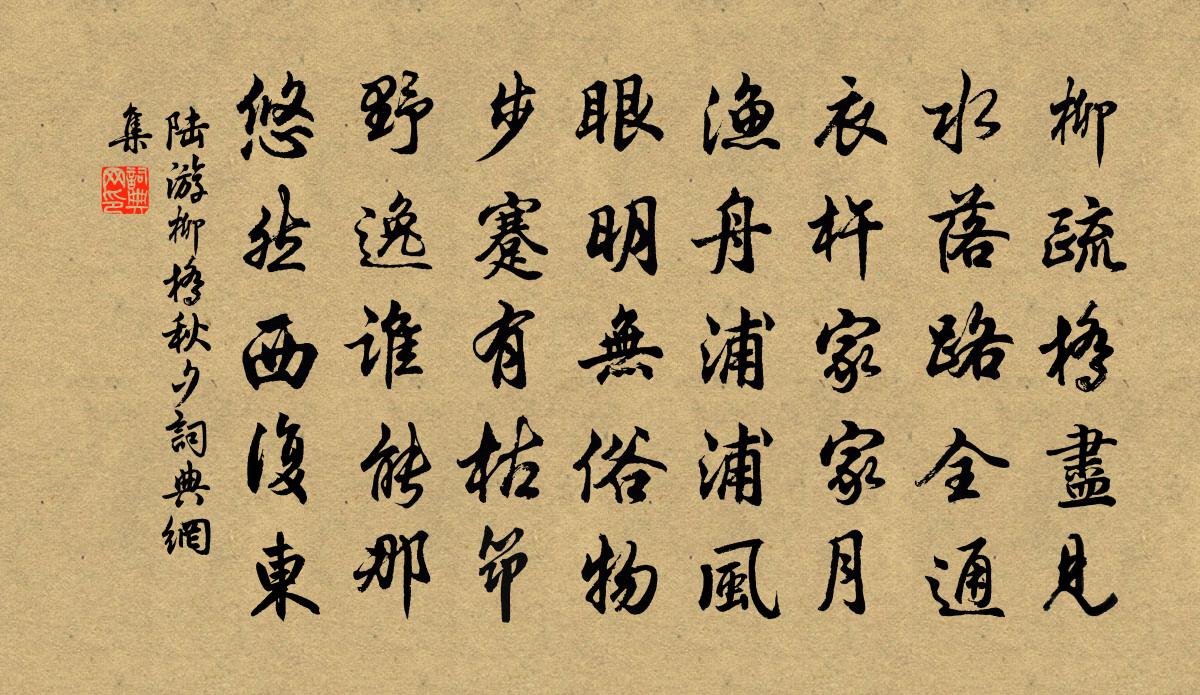 柳疏橋盡見
水落路全通
衣杵家家月
漁舟浦浦風
眼明無俗物
步蹇有枯笻
野逸誰能那
悠然西復東
陸游柳橋秋夕詞典網
集
詞典
网印